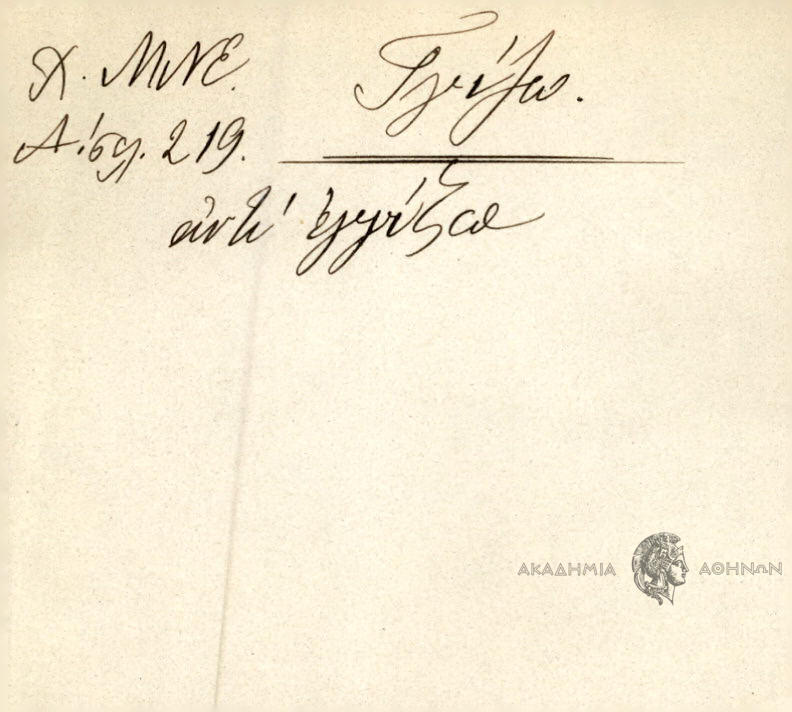 Χ. ΜΝΕ.
Γγίζω.
Αἰσλ. 219.
ἀντὶ ἐγγίζω
ΑΚΑΔΗΜΙΑ ΑΘΗΝΩΝ